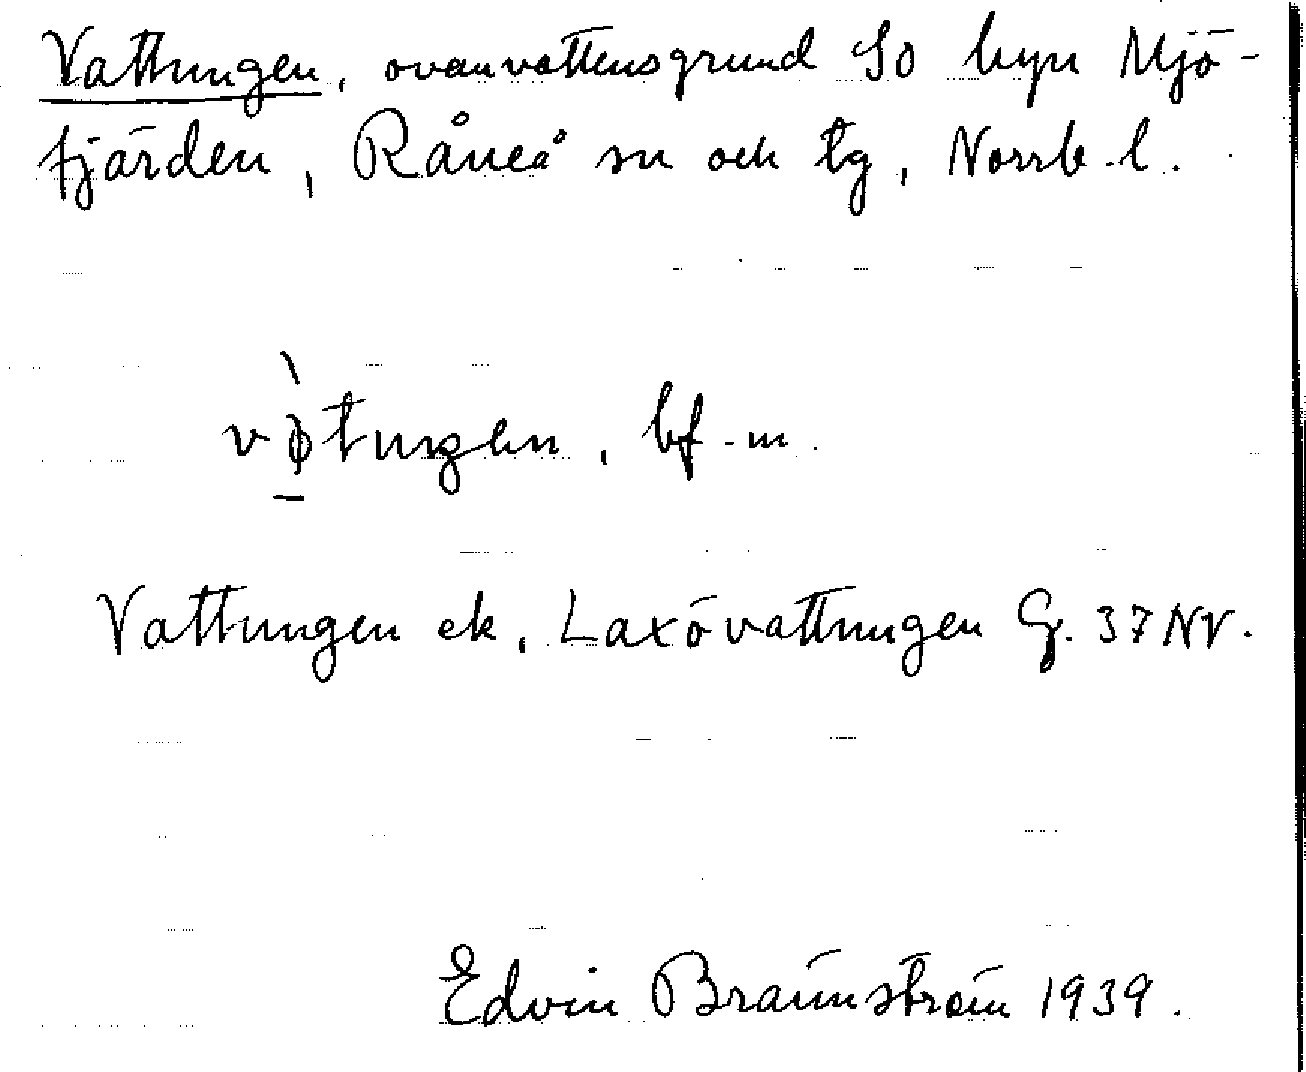 Vattungen, ovanvattensgrund SO byn Mjö-
fjärden, Råneå sn och tg, Norrb. l.
bf. m.
Vattungen ek, Laxövattungen G. 37 NV.
Edvin Brännström 1939.